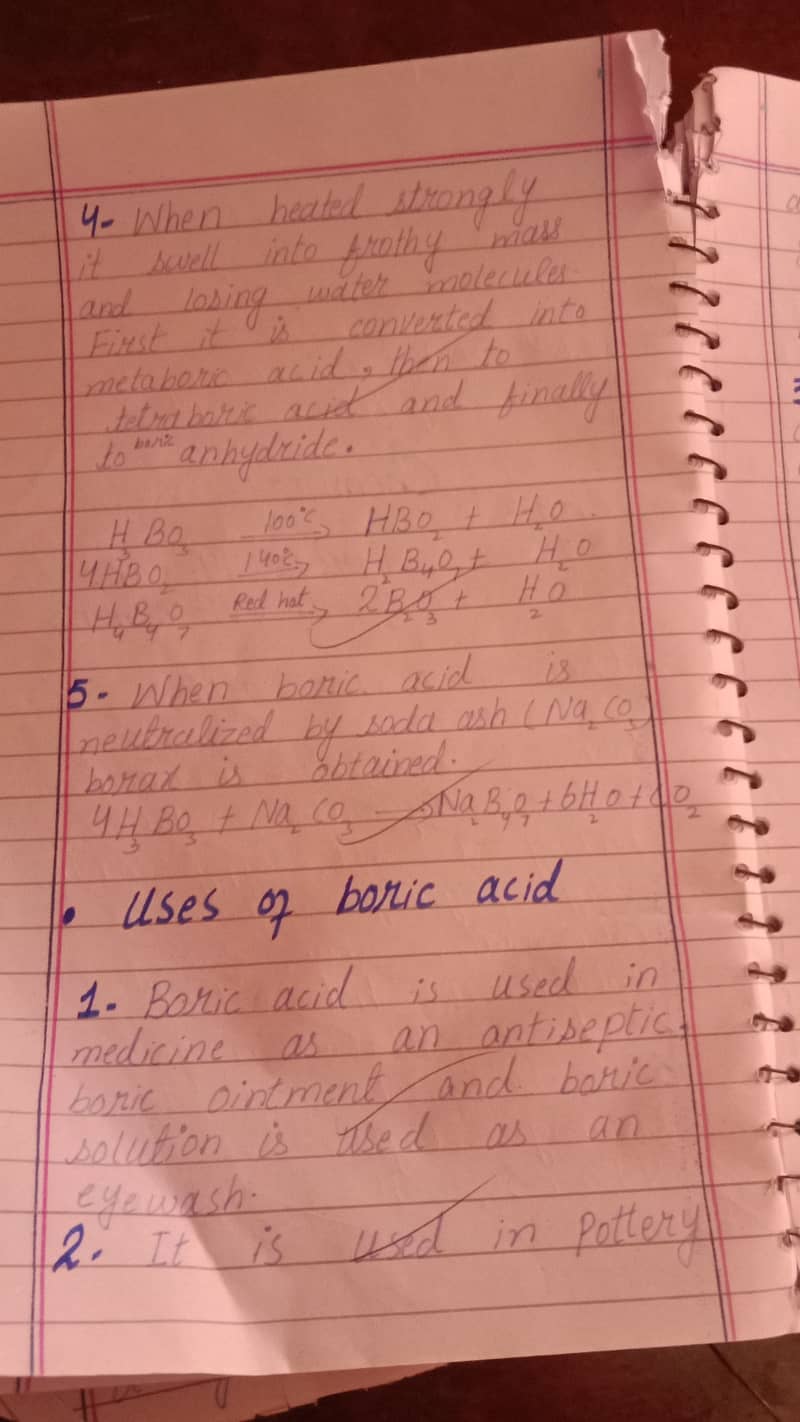 4- When heated strongly
it swell into frothy mass
and losing water molecules.
First it is converted into
metaboric acid, then to
tetraboric acid and finally
to boric anhydride.
H₃BO₃ —100°C→ HBO₂ + H₂O
4HBO₂ —140°C→ H₂B₄O₇ + H₂O
H₄B₄O₇ —Red hot→ 2B₂O₃ + H₂O
5- When boric acid is
neutralized by soda ash (Na₂CO₃)
borax is obtained.
4H₃BO₃ + Na₂CO₃ → Na₂B₄O₇ + 6H₂O + CO₂
• Uses of boric acid
1- Boric acid is used in
medicine as an antiseptic,
boric ointment and boric
solution is used as an
eyewash.
2. It is used in Pottery